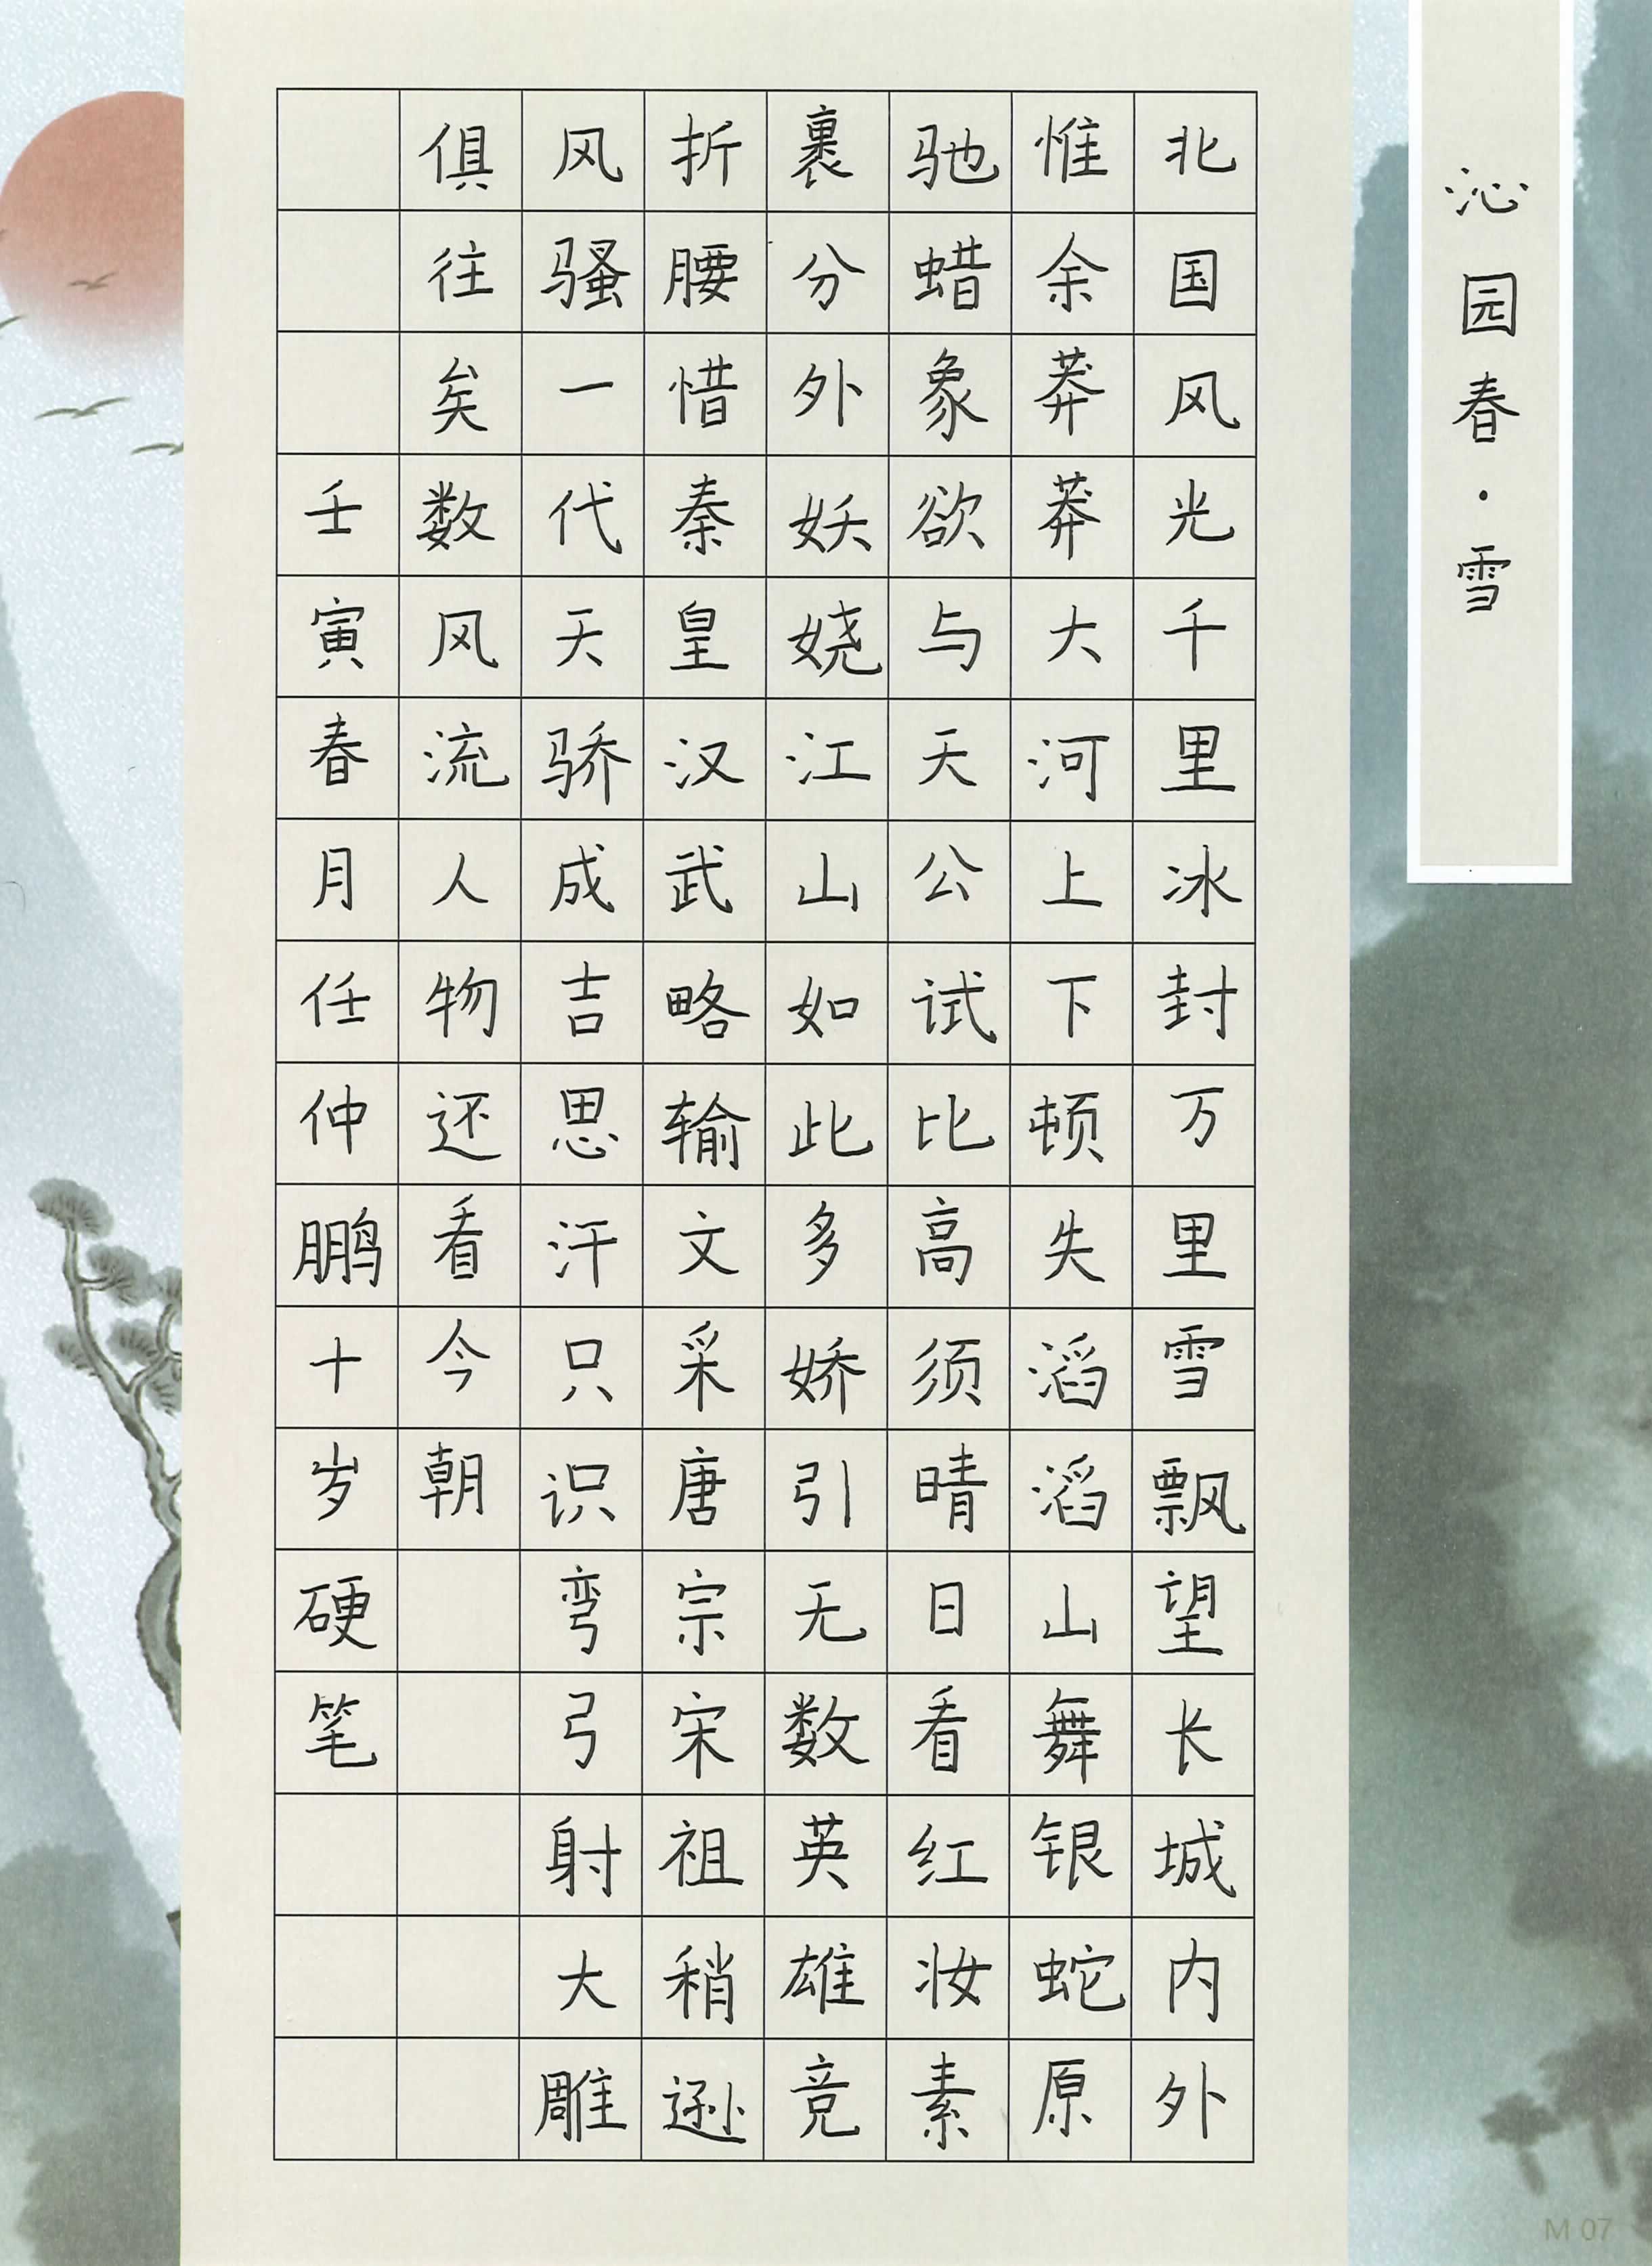 沁园春·雪
北国风光千里冰封万里雪飘望长城内外
惟余莽莽大河上下顿失滔滔山舞银蛇原
驰蜡象欲与天公试比高须晴日看红妆素
裹分外妖娆江山如此多娇引无数英雄竞
折腰惜秦皇汉武略输文采唐宗宋祖稍逊
风骚一代天骄成吉思汗只识弯弓射大雕
俱往矣数风流人物还看今朝
壬寅春月任仲鹏十岁硬笔
M 07